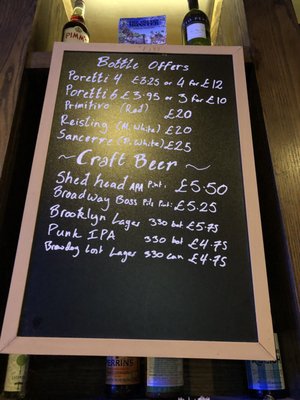 PIMM'S
Bottle Offers
Poretti 4 £3.25 or 4 for £12
Poretti 6 £3.95 or 3 for £10
Primitivo (Red) £20
Reisling (M.White) £20
Sancerre (P.White) £25
~ Craft Beer ~
Shed head APA Pint. £5.50
Broadway Boss Pils Pint: £5.25
Brooklyn Lager 330 bot £5.75
Punk IPA 330 bot £4.75
Brewdog Lost Lager 330 can £4.75